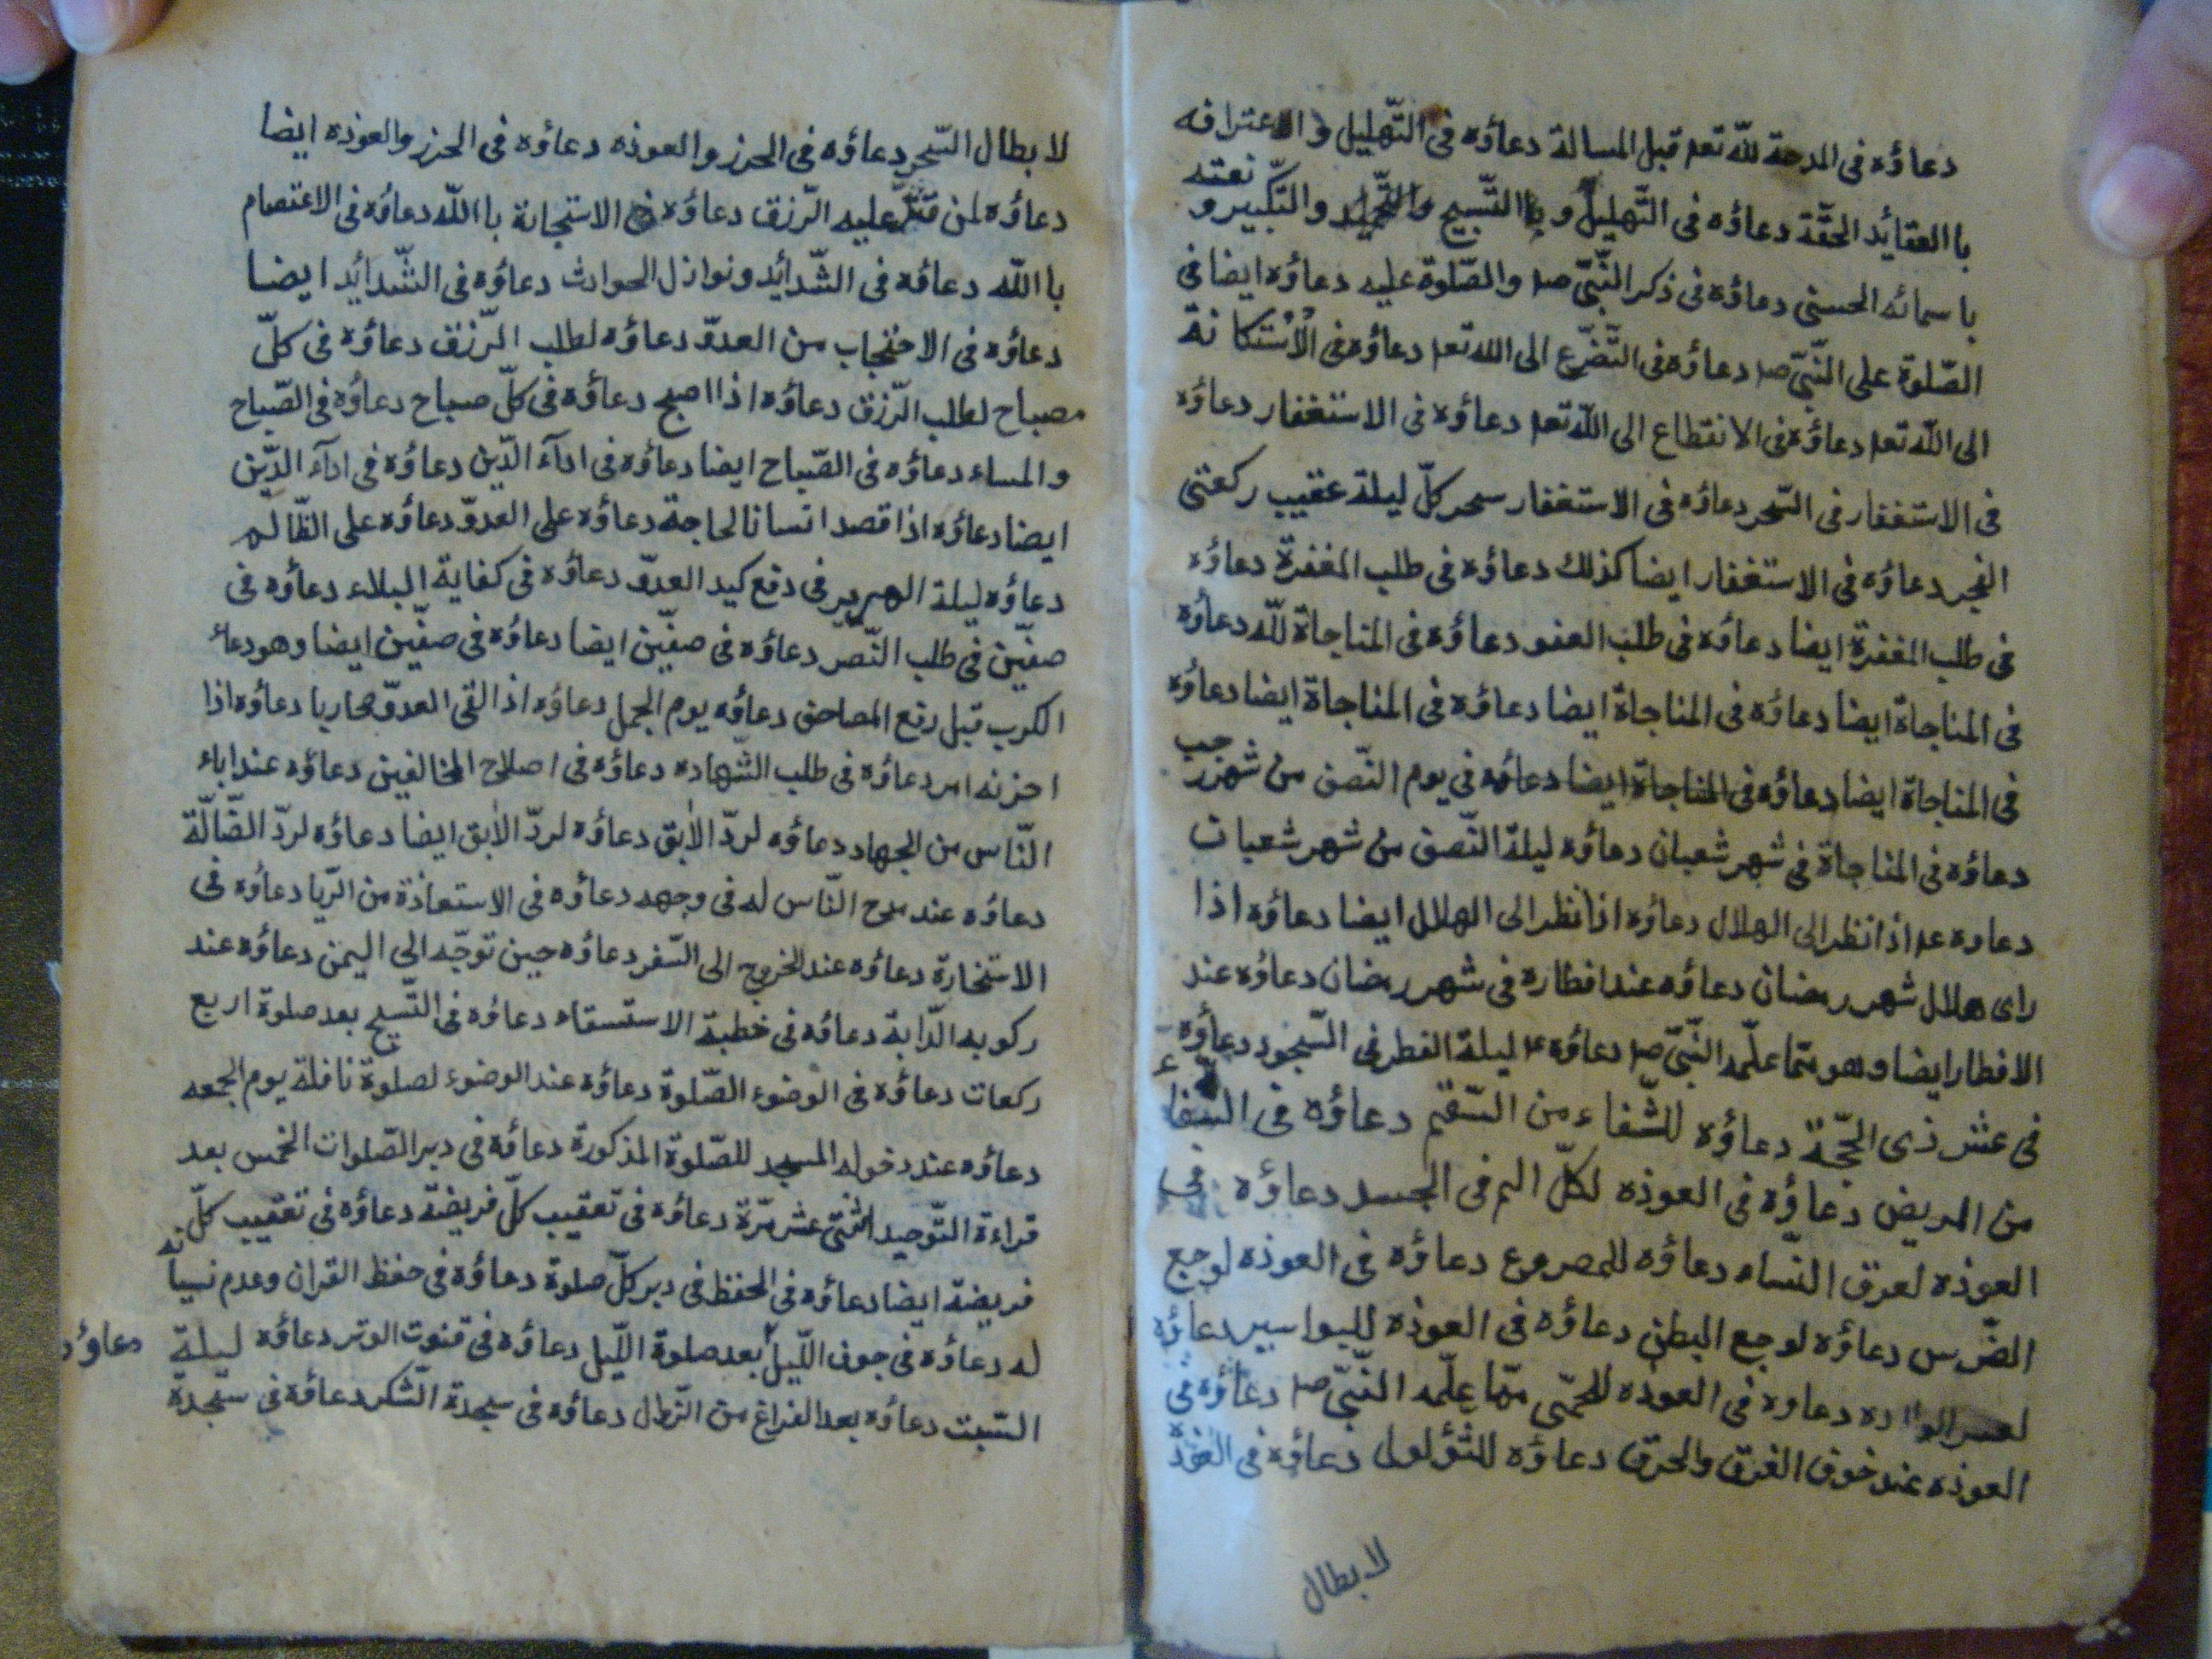 دعاؤه فى المدحة للّه تعم قبل المسالة دعاؤه فى التّهليل والاعترافه
باالعقائد الحقّة دعاؤه فى التّهليل و باالتّسبيح والتّحميد والتّكبير و نعته
باسمائه الحسنى دعاؤه فى ذكر النّبىّ صم والصّلوة عليه دعاؤه ايضا فى
الصّلوة على النّبىّ صم دعاؤه فى التّضرّع الى الله تعم دعاؤه فى الاُسْتكانة
الى اللّه تعم دعاؤه فى الانقطاع الى اللّه تعم دعاؤه فى الاستغفار دعاؤه
فى الاستغفار فى السّحر دعاؤه فى الاستغفار سحر كلّ ليلة عقيب ركعتى
الفجر دعاؤه فى الاستغفار ايضا كذلك دعاؤه فى طلب المغفرة دعاؤه
فى طلب المغفرة ايضا دعاؤه فى طلب العفو دعاؤه فى المناجاة للّه دعاؤه
فى المناجاة ايضا دعاؤه فى المناجاة ايضا دعاؤه فى المناجاة ايضا دعاؤه
فى المناجاة ايضا دعاؤه فى المناجاة ايضا دعاؤه فى يوم النّصف من شهر رجب
دعاؤه فى المناجاة فى شهر شعبان دعاؤه ليلة النّصف من شهر شعبان
دعاوه عم اذا نظر الى الهلال دعاؤه اذا نظر الى الهلال ايضا دعاؤه اذا
راى هلال شهر رمضان دعاؤه عند افطاره فى شهر رمضان دعاؤه عند
الافطار ايضا وهو ممّا علّمه النّبىّ صم دعاؤه عم ليلة الفطر فى السّجود دعاؤه
فى عشر ذى الحّجّة دعاؤه للشّفاء من السّقم دعاؤه فى الشّفاء
من المريض دعاؤه فى العوذه لكلّ الم فى الجسد دعاؤه فى
العوذه لعرق النّساء دعاؤه للمصروع دعاؤه فى العوذه لوجع
الضّرس دعاؤه لوجع البطن دعاؤه فى العوذه للبواسير دعاؤه
لعسر دعاوه فى العوذه للحمّى ممّا علّمه النّبىّ صم دعاؤه فى
العوذه عند خوف الغرق والحرق دعاؤه للثؤلول دعاؤه فى العوذة
لابطال
لابطال السّحر دعاؤه فى الحرز والعوذه دعاؤه فى الحرز والعوذه ايضا
دعاؤه لمن قتّر عليه الرّزق دعاؤه فى الاستجانة باالله دعاؤه فى الاعتصام
باالله دعاؤه فى الشّدائد ونوازل الحوادث دعاؤه فى الشّدائد ايضا
دعاؤه فى الاحتجاب من العدوّ دعاؤه لطلب الرّزق دعاؤه فى كلّ
مصباح لطلب الرّزق دعاؤه اذا اصبح دعاؤه فى كلّ صباح دعاؤه فى الصّباح
والمساء دعاؤه فى الصّباح ايضا دعاؤه فى اداَء الدّين دعاؤه فى اداَء الدّين
ايضا دعاؤه اذا قصد انسانا لحاجة دعاؤه على العدوّ دعاؤه على الظّالم
دعاؤه ليلة الهرير فى دفع كيد العدوّ دعاؤه فى كفاية البلاء دعاؤه فى
صفّين فى طلب النّصر دعاؤه فى صفّين ايضا دعاؤه فى صفّين ايضا وهو دعاء
الكرب قبل رفع المصاحف دعاؤه يوم الجمل دعاؤه اذا لقى العدوّ محاربا دعاؤه اذا
احزنه امر دعاؤه فى طلب الشّهاده دعاؤه فى اصلاح المخالفين دعاؤه عند اباء
النّاس من الجهاد دعاؤه لردّ الابق دعاؤه لردّ الابق ايضا دعاؤه لردّ الضّالّة
دعاؤه عند مدح النّاس له فى وجهه دعاؤه فى الاستعاذة من الرّيا دعاؤه فى
الاستخارة دعاؤه عند الخروج الى السّفر دعاؤه حين توجّه الى اليمن دعاؤه عند
ركوبه الدّابة دعاؤه فى خطبة الاستسقاء دعاؤه فى التّسبيح بعد صلوة اربع
ركعات دعاؤه فى الوضوء الصّلوة دعاؤه عند الوضوء لصلوة نافلة يوم الجمعه
دعاؤه عند دخوله المسجد للصّلوة المذكورة دعاؤه فى دبر الصّلوات الخمس بعد
قراءة التّوحيد اثنتى عشر مرّة دعاؤه فى تعقيب كلّ فريضة دعاؤه فى تعقيب كلّ
فريضة ايضا دعاؤه فى الحفظ فى دبر كلّ صلوة دعاؤه فى حفظ القران وعدم نسيانه
له دعاؤه فى جوف اللّيل بعد صلوة اللّيل دعاؤه فى قنوت الوتر دعاؤه ليلة
السّبت دعاؤه بعد الفراغ من الزّوال دعاؤه فى سجدة الشّكر دعاؤه فى سجدة
دعاؤه